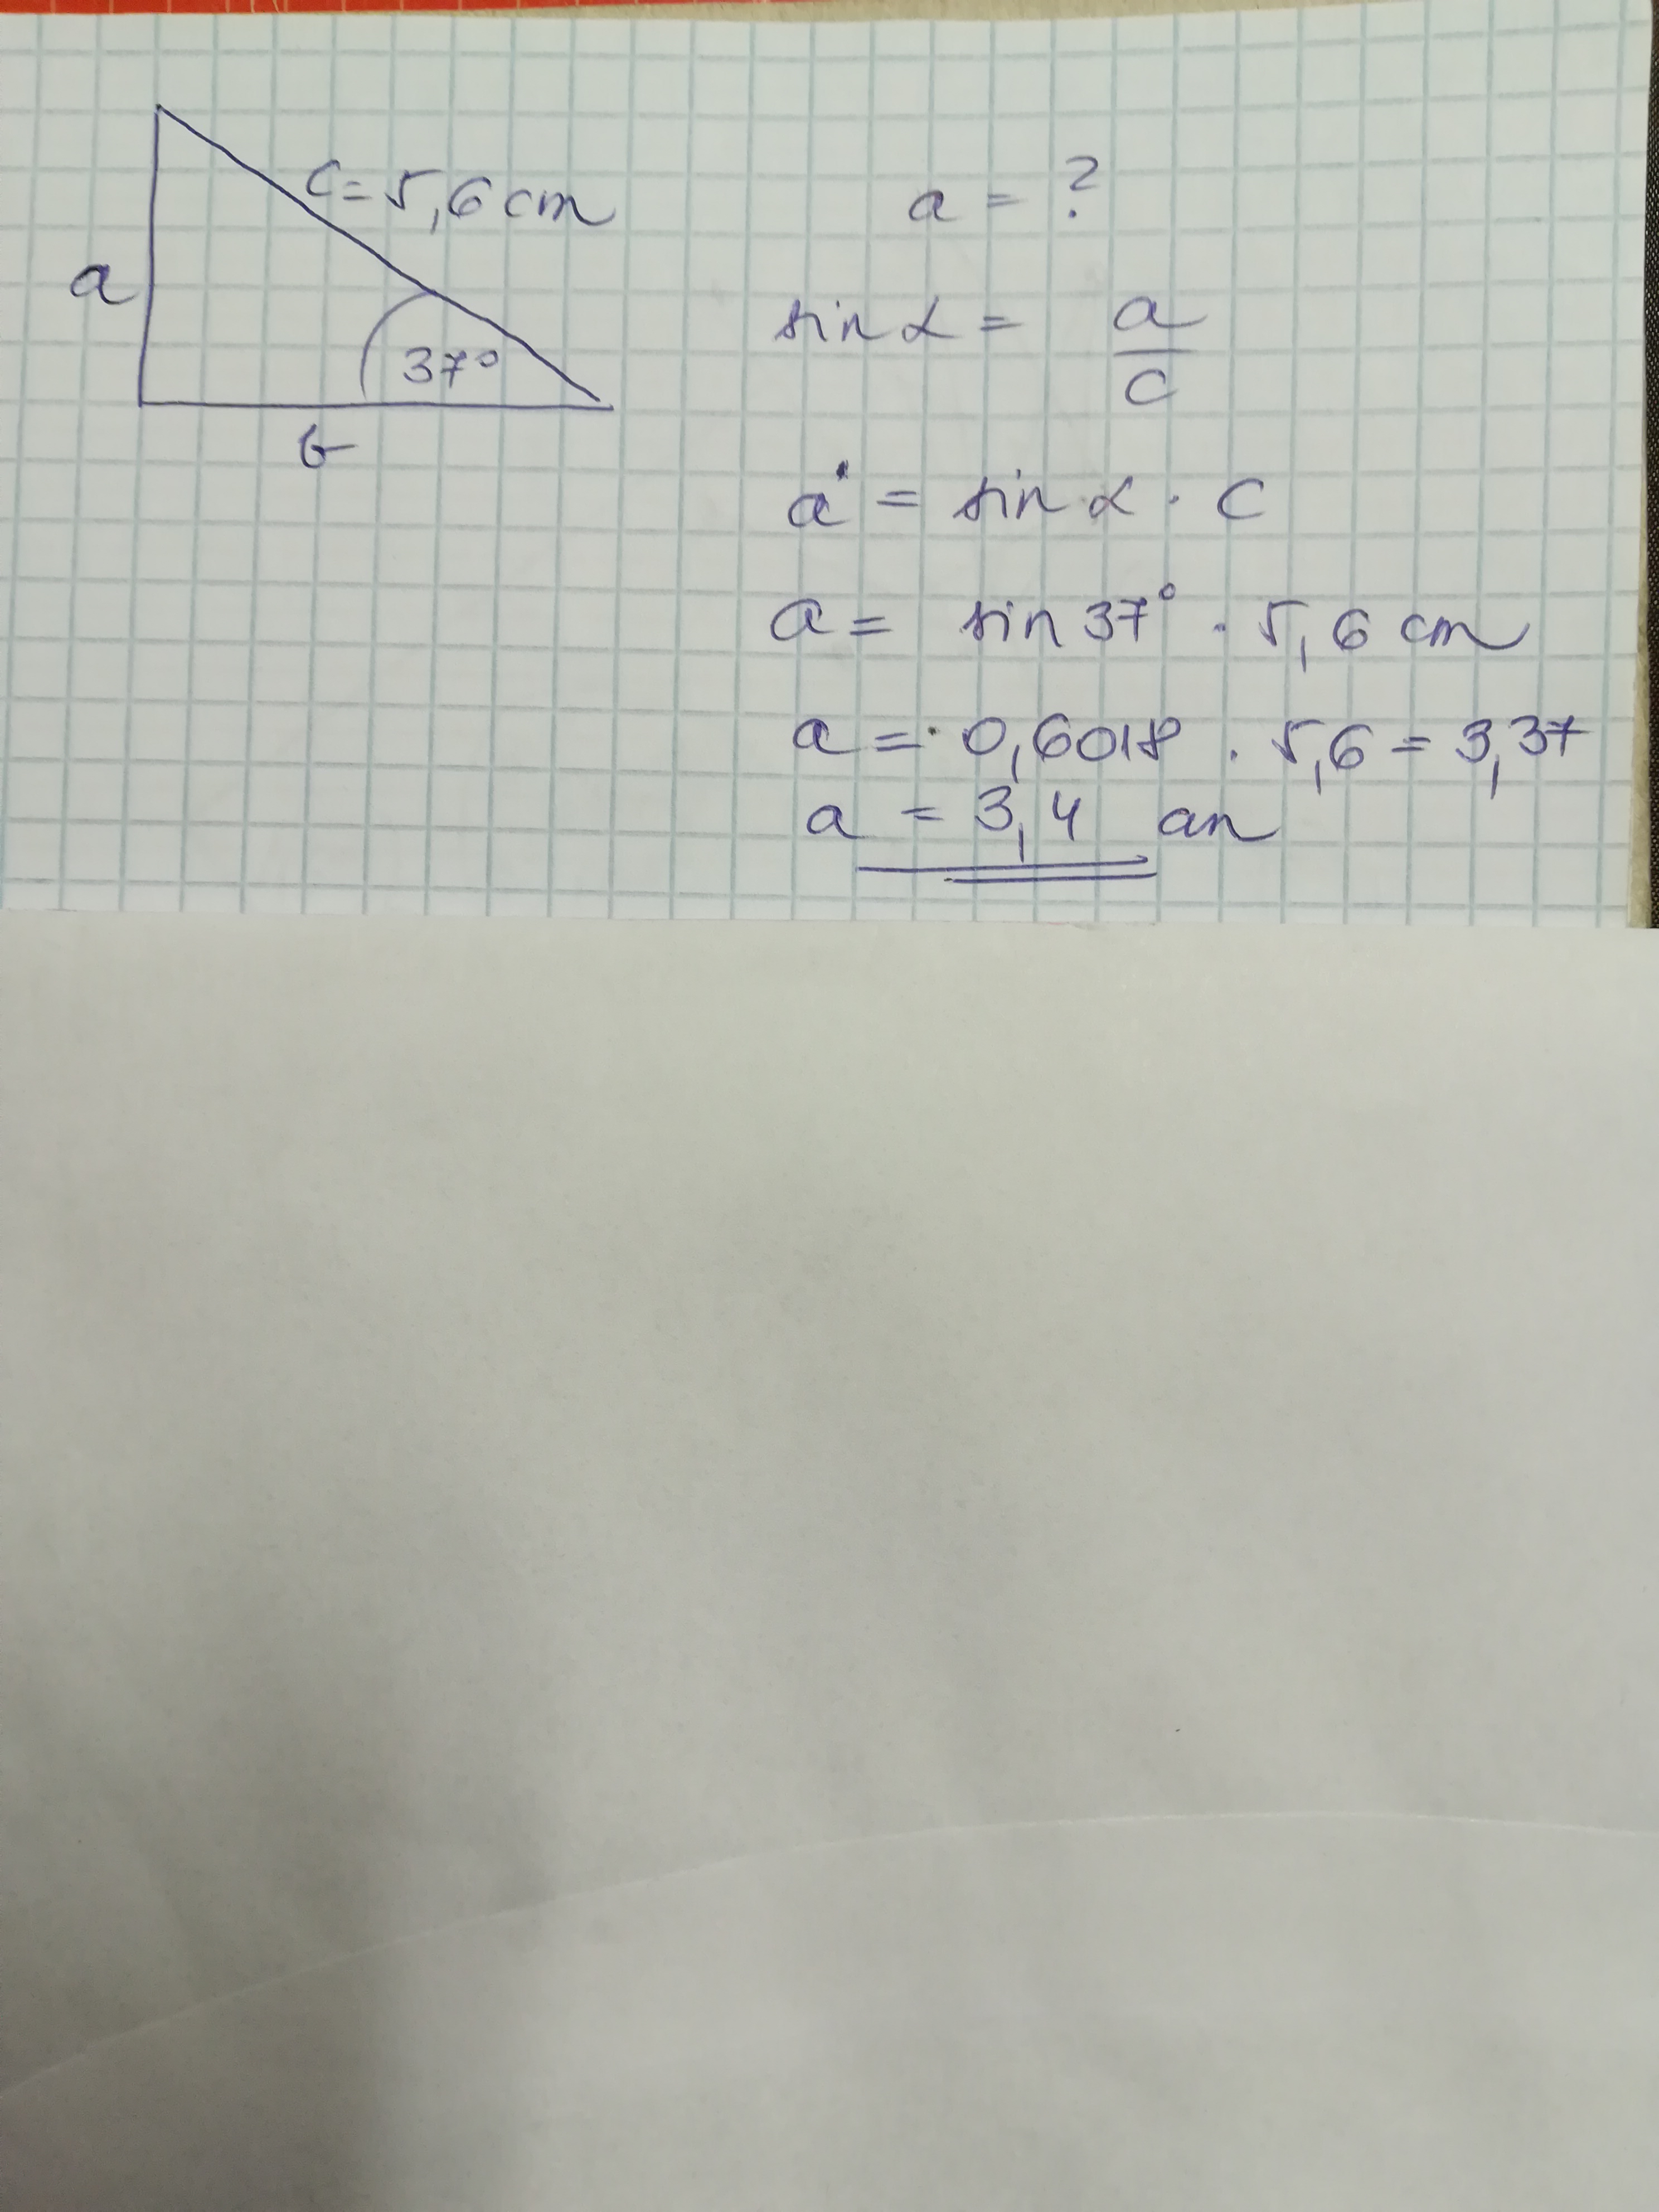 c = 5,6 cm
a
37°
b
a = ?
sin α = a/c
a = sin α · c
a = sin 37° · 5,6 cm
a = 0,6018 · 5,6 = 3,37
a = 3,4 cm